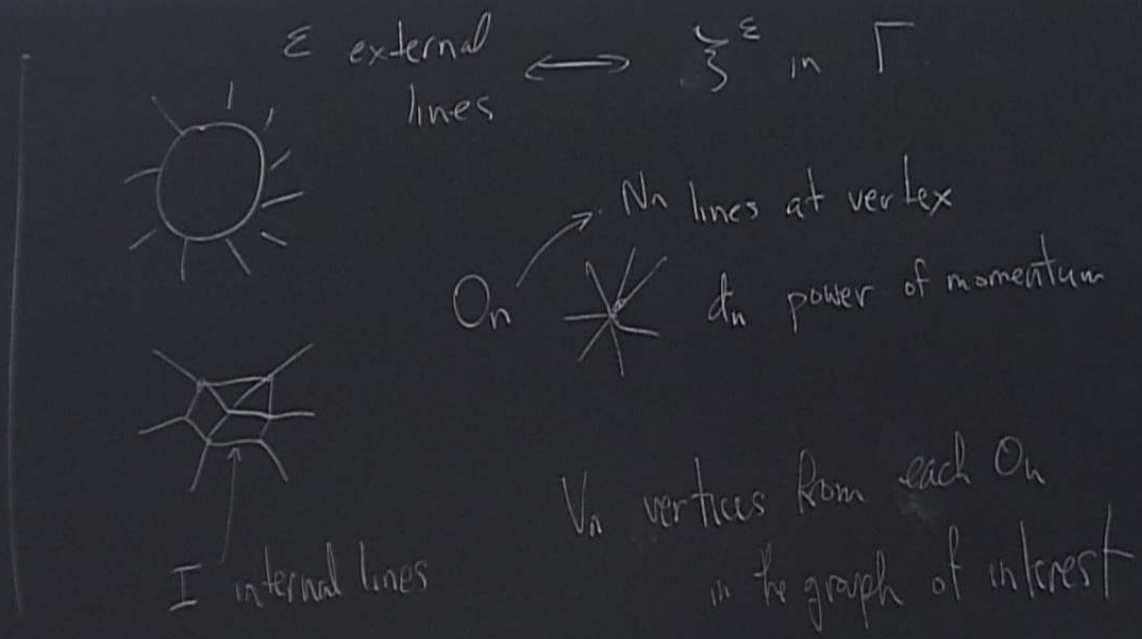 ε external lines ⟷ ξ^ε in Γ
N_n lines at vertex
O_n
d_n power of momentum
I internal lines
V_n vertices from each O_n
in the graph of interest